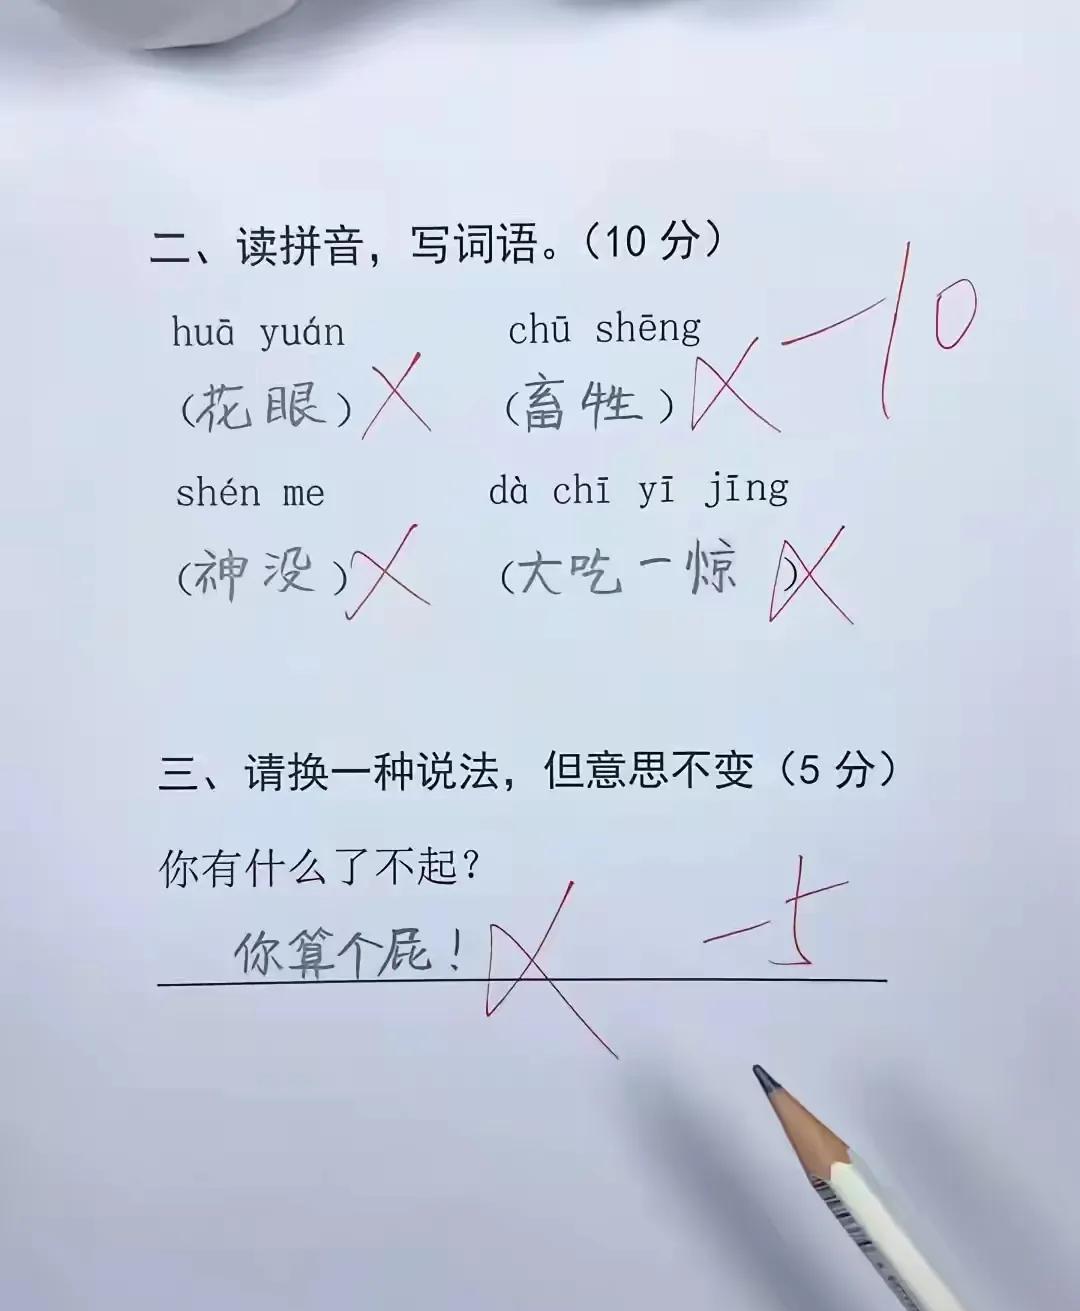 二、读拼音，写词语。（10 分）
huā yuán chū shēng
（花眼）（畜牲） -10
shén me dà chī yī jīng
（神没）（大吃一惊）
三、请换一种说法，但意思不变（5 分）
你有什么了不起？
你算个屁！ -5